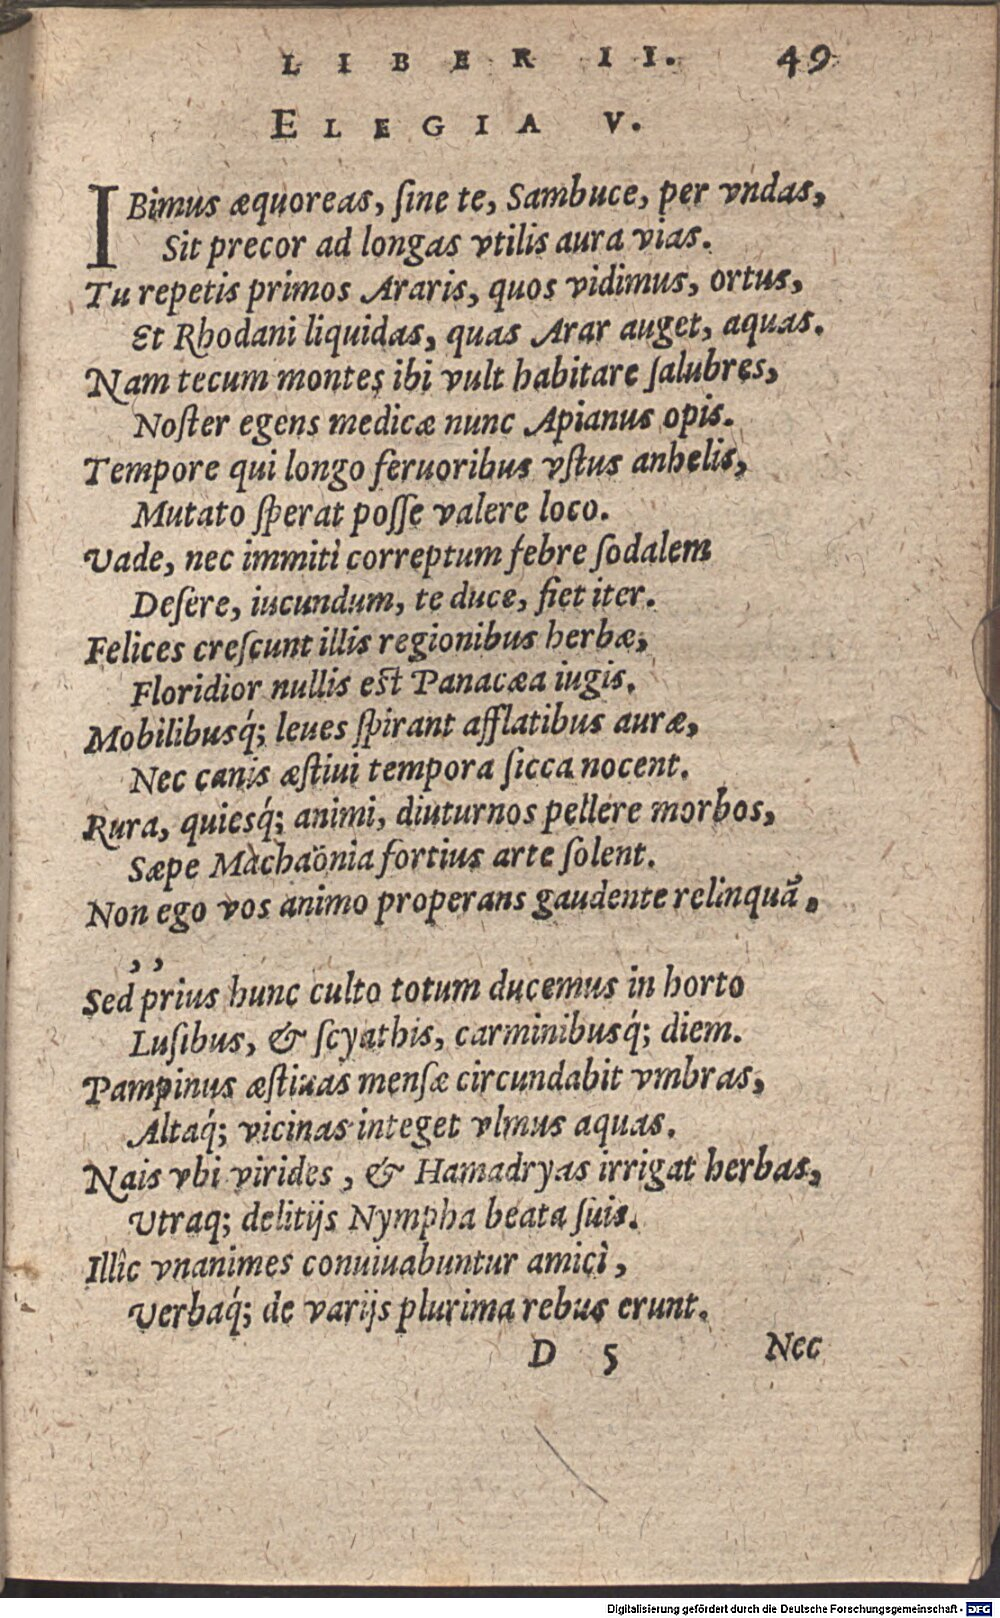 LIBER II. 49
ELEGIA V.
IBimus æquoreas, ſine te, Sambuce, per vndas,
Sit precor ad longas vtilis aura vias.
Tu repetis primos Araris, quos vidimus, ortus,
Et Rhodani liquidas, quas Arar auget, aquas.
Nam tecum montes ibi vult habitare ſalubres,
Noſter egens medicæ nunc Apianus opis.
Tempore qui longo feruoribus vſtus anhelis,
Mutato ſperat poſſe valere loco.
Vade, nec immiti correptum febre ſodalem
Deſere, iucundum, te duce, fiet iter.
Felices creſcunt illis regionibus herbæ,
Floridior nullis eſt Panacæa iugis.
Mobilibusq́; leues ſpirant afflatibus auræ,
Nec canis æſtiui tempora ſicca nocent.
Rura, quiesq́; animi, diuturnos pellere morbos,
Sæpe Machaönia fortius arte ſolent.
Non ego vos animo properans gaudente relinquã,
, ,
Sed prius hunc culto totum ducemus in horto
Luſibus, & ſcyathis, carminibusq́; diem.
Pampinus æſtiuas menſæ circundabit vmbras,
Altaq́; vicinas integet vlmus aquas.
Nais vbi virides, & Hamadryas irrigat herbas,
Vtraq; delitijs Nympha beata ſuis.
Illîc vnanimes conuiuabuntur amici,
Verbaq́; de varijs plurima rebus erunt.
D 5 Nec
Digitalisierung gefördert durch die Deutsche Forschungsgemeinschaft - DFG